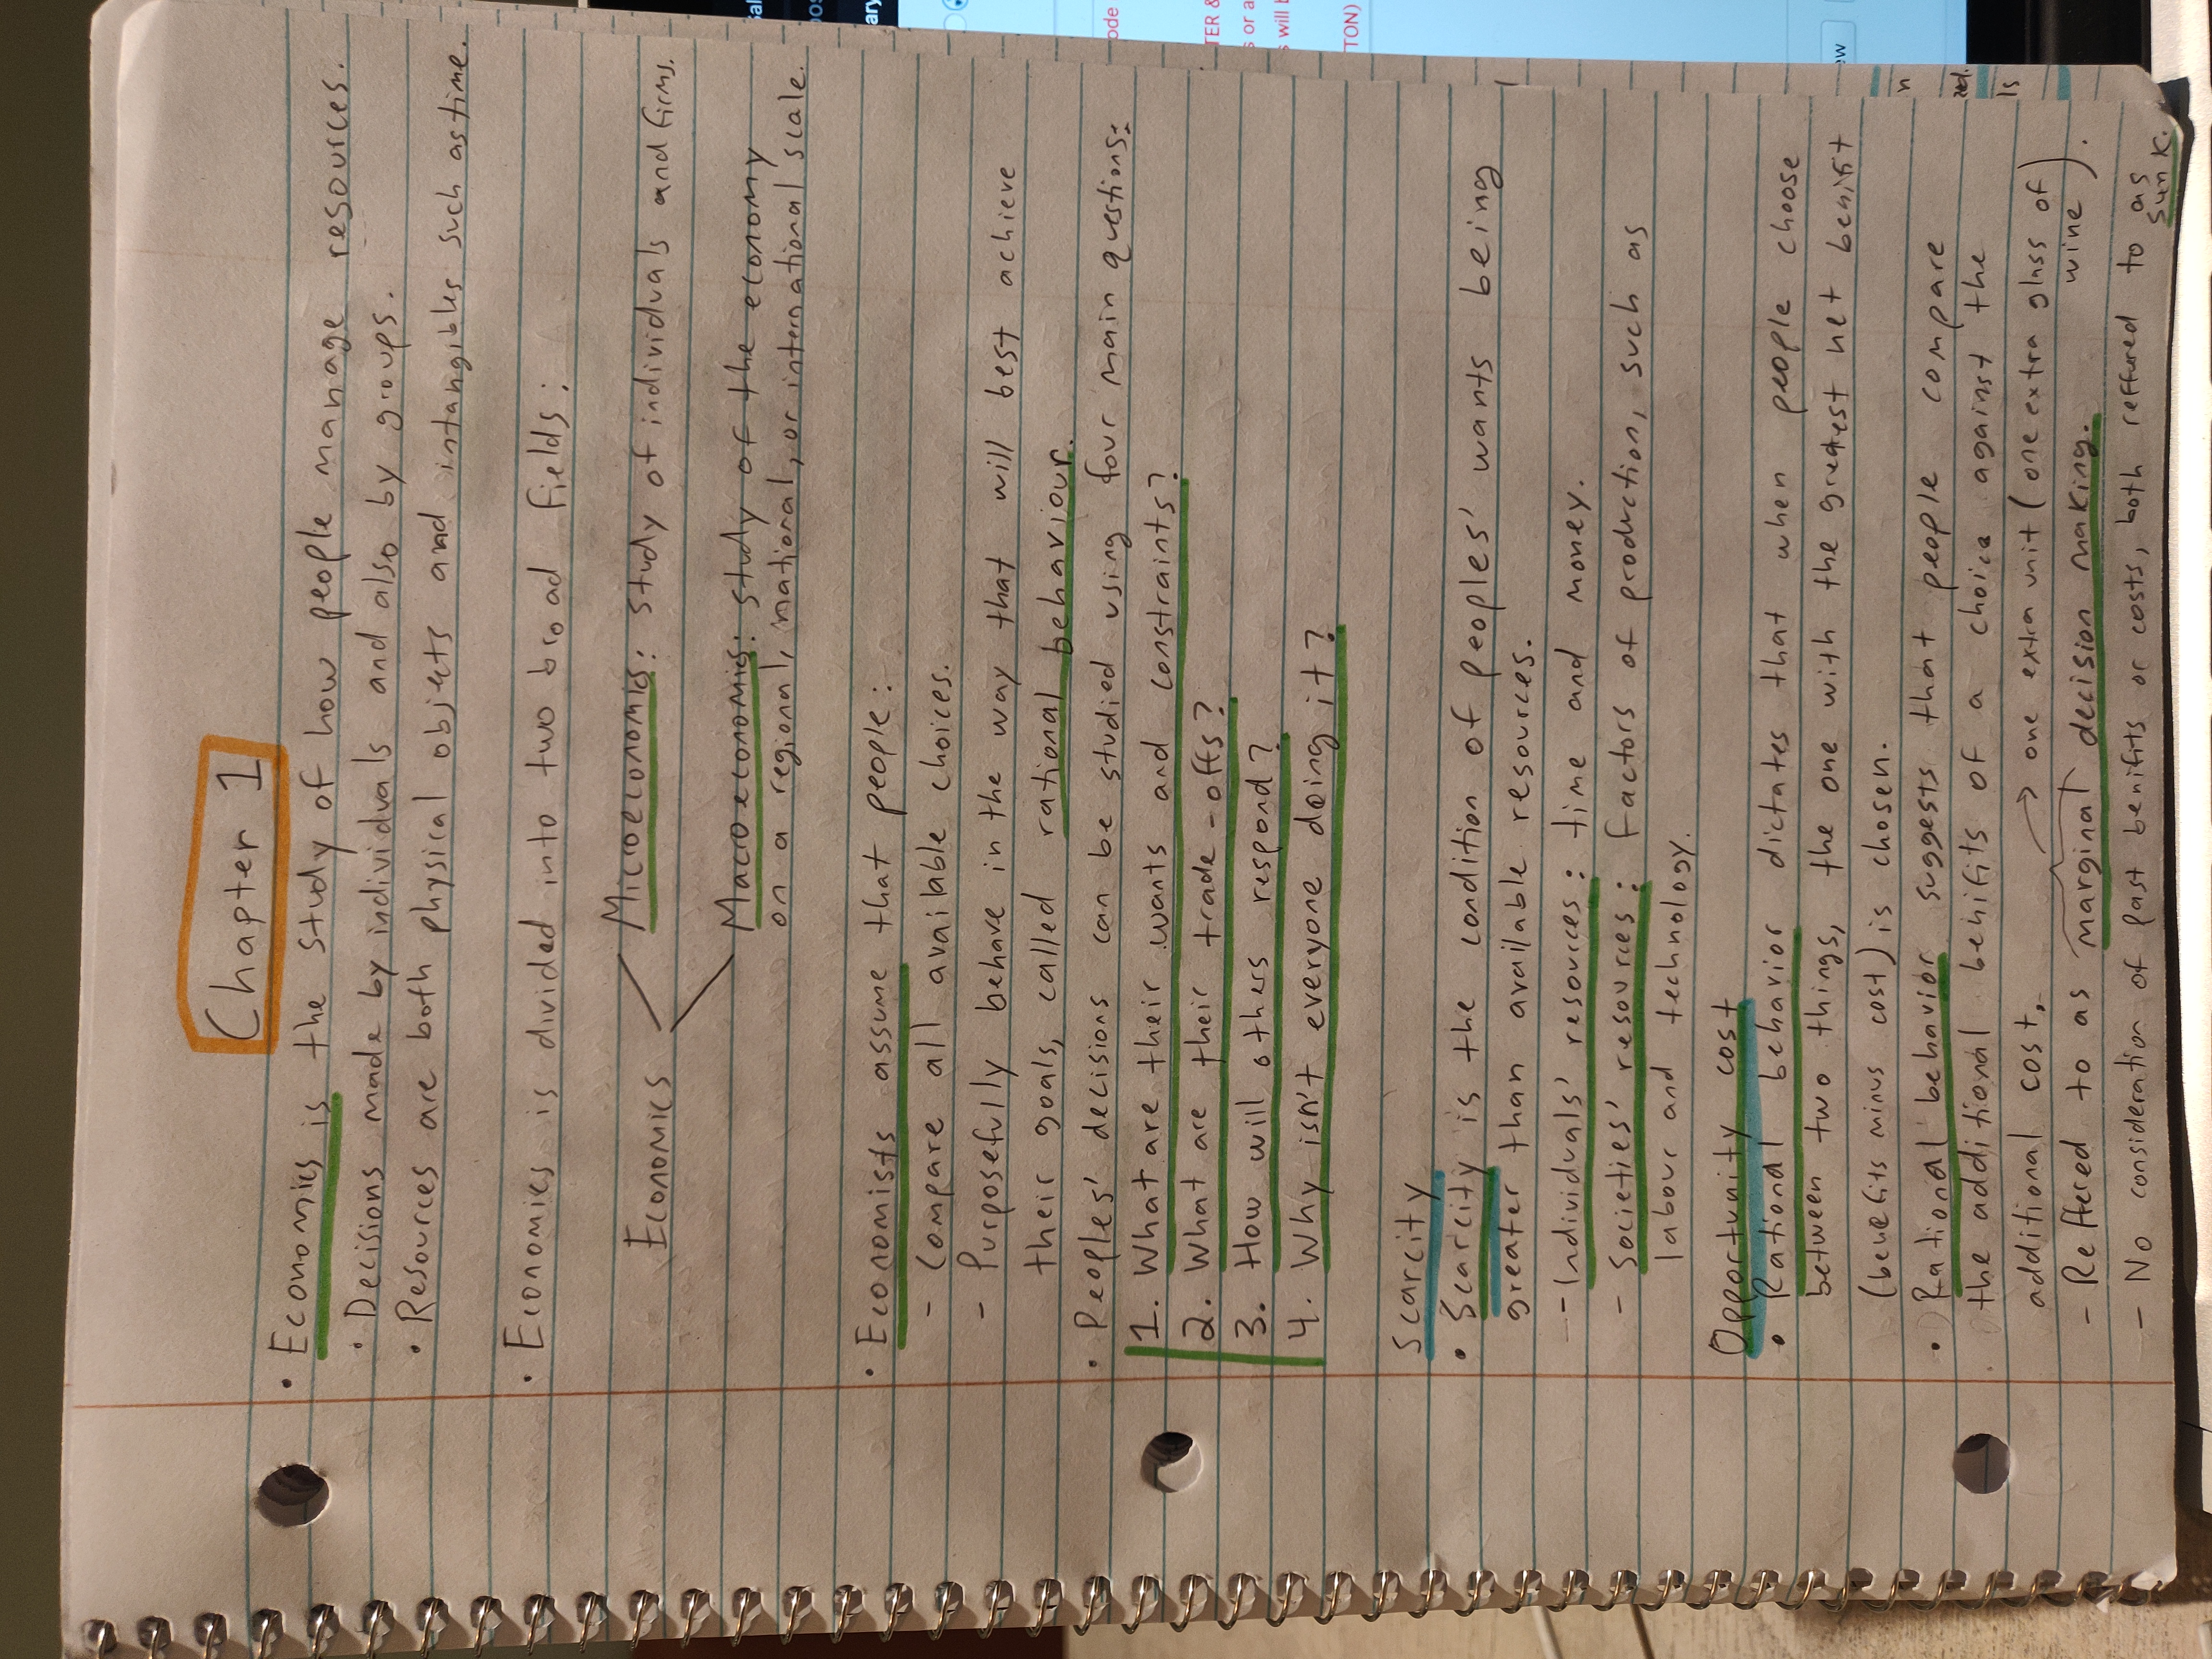 Chapter 1
• Economics is the study of how people manage resources.
• Decisions made by individuals and also by groups.
• Resources are both physical objects and intangibles such as time.
• Economics is divided into two broad fields:
Microeconomics: study of individuals and firms.
Economics
Macroeconomics: study of the economy
on a regional, national, or international scale.
• Economists assume that people:
- Compare all available choices.
- Purposefully behave in the way that will best achieve
their goals, called rational behaviour.
• Peoples' decisions can be studied using four main questions:
1. What are their wants and constraints?
2. What are their trade-offs?
3. How will others respond?
4. Why isn't everyone doing it?
Scarcity
• Scarcity is the condition of peoples' wants being
greater than available resources.
- Individuals' resources: time and money.
- Societies' resources: factors of production, such as
labour and technology.
Opportunity cost
• Rational behavior dictates that when people choose
between two things, the one with the greatest net benifit
(benefits minus cost) is chosen.
• Rational behavior suggests that people compare
the additional benifits of a choice against the
additional cost. → one extra unit (one extra glass of
wine).
- Reffered to as marginal decision making.
- No consideration of past benifits or costs, both reffured to as
sunk.
ode
TER &
s or a
s will b
TON)
ew
ary